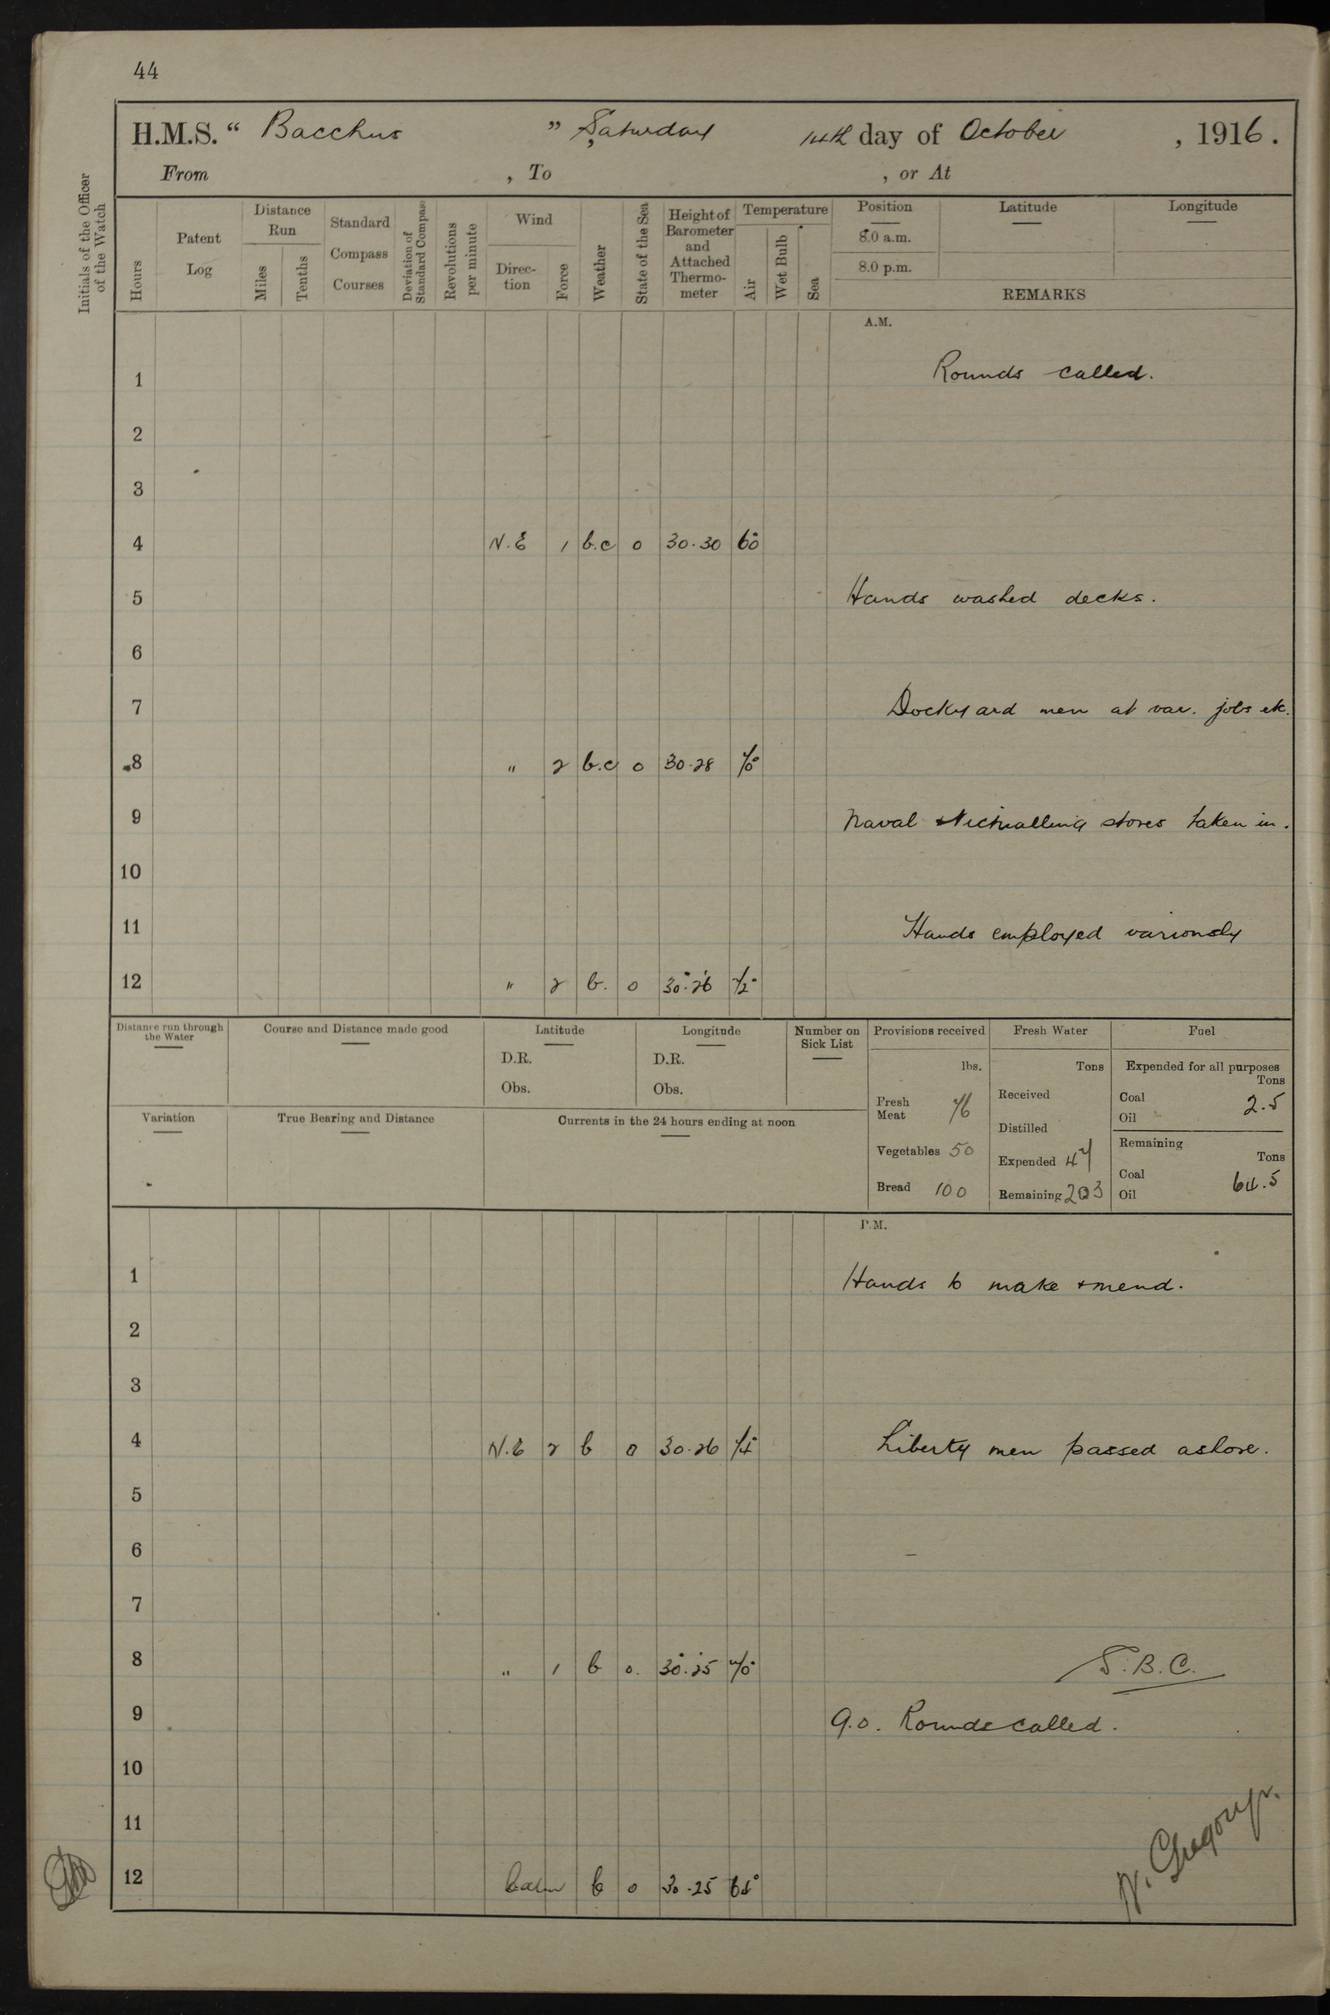 44
H.M.S. “ Bacchus ” , Saturday 14th day of October , 1916.
From , To , or At
Initials of the Officer of the Watch
Hours
Patent Log
Distance Run
Miles
Tenths
Standard Compass Courses
Deviation of Standard Compass
Revolutions per minute
Wind
Direc-tion
Force
Weather
State of the Sea
Height of Barometer and Attached Thermo-meter
Temperature
Air
Wet Bulb
Sea
Position Latitude Longitude
8.0 a.m.
8.0 p.m.
REMARKS
A.M.
1 Rounds called.
2
3
4 N.E 1 b.c 0 30.30 60°
5 Hands washed decks.
6
7 Dockyard men at var. jobs etc.
8 " 2 b.c 0 30.28 70°
9 Naval & Victualling stores taken in.
10
11 Hands employed variously
12 " 2 b. 0 30.26 72°
Distance run through the Water
Course and Distance made good
Latitude
D.R.
Obs.
Longitude
D.R.
Obs.
Number on Sick List
Provisions received
lbs.
Fresh Meat 76
Vegetables 50
Bread 100
Fresh Water
Tons
Received
Distilled
Expended 47
Remaining 203
Fuel
Expended for all purposes
Tons
Coal 2.5
Oil
Remaining
Tons
Coal 64.5
Oil
Variation
True Bearing and Distance
Currents in the 24 hours ending at noon
P.M.
1 Hands to make & mend.
2
3
4 N.E 2 b 0 30.26 74° Liberty men passed ashore.
5
6
7
8 " 1 b 0. 30.25 70° S.B.C.
9 9.0. Rounds called.
10
11
12 Calm b 0 30.25 68°
N. Gregory